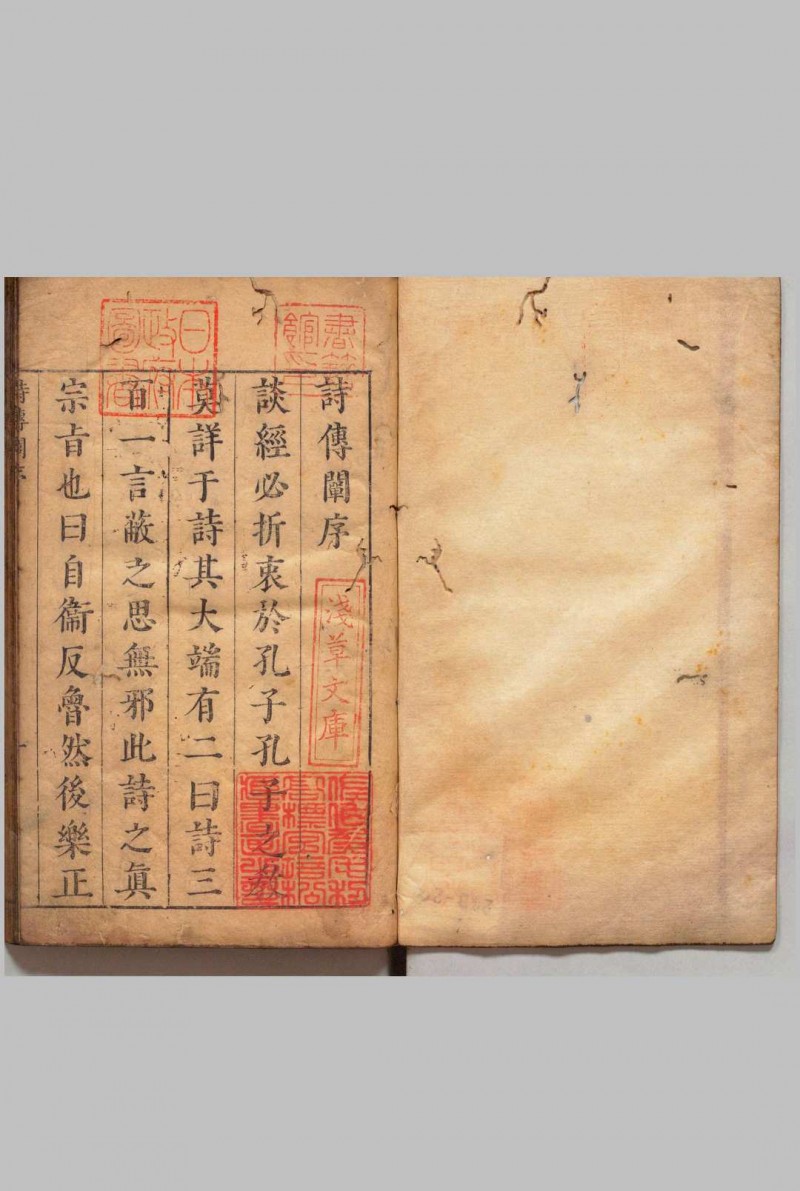 詩傳闡序
談經必折衷於孔子孔子之教
莫詳于詩其大端有二曰詩三
百一言蔽之思無邪此詩之眞
宗旨也曰自衞反魯然後樂正
詩傳闡序
一
書籍館印
日本政府圖書
淺草文庫